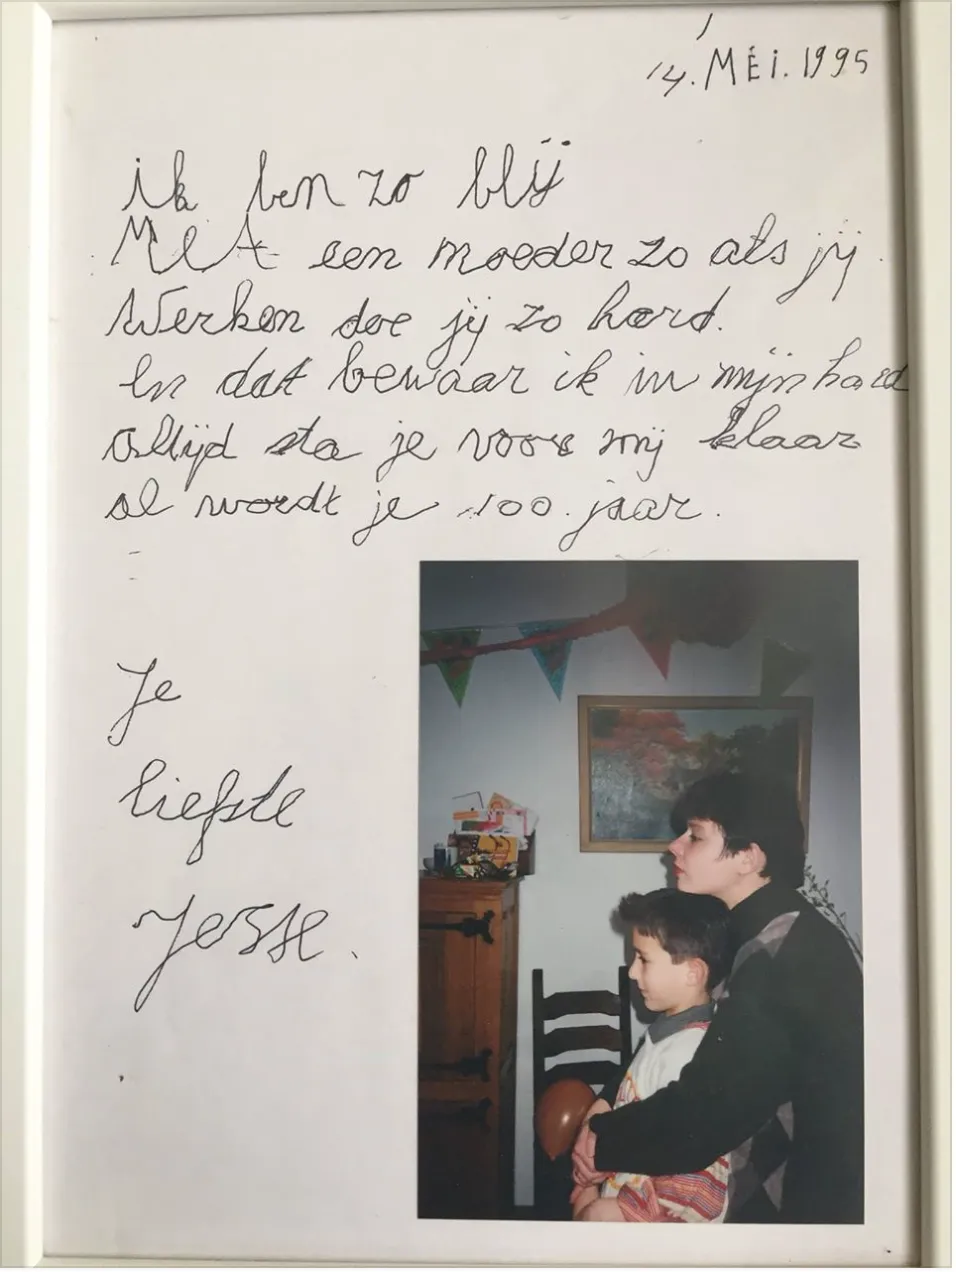 14. MEi. 1995
ik ben zo blij
Met een moeder zo als jij.
Werken doe jij zo hard.
En dat bewaar ik in mijn hard
altijd sta je voor mij klaar
al wordt je 100. jaar.
Je
liefste
Jesse.